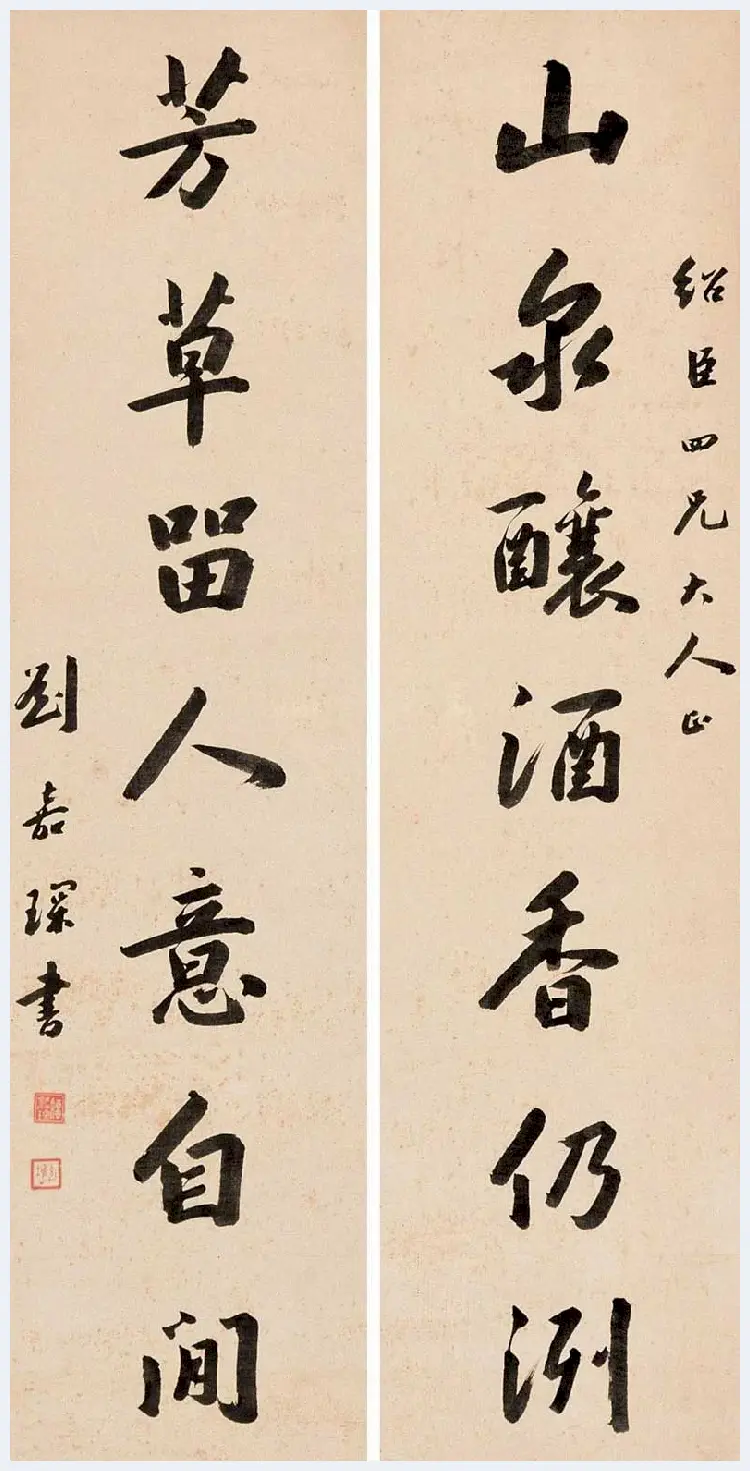 紹臣四兄大人正
山泉釀酒香仍洌
芳草留人意自閒
劉嘉琛書